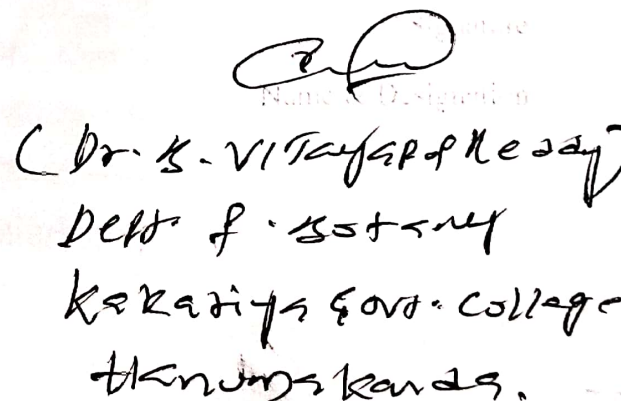 Signature
Name & Designation
(Dr. B. Vijayapal Reddy)
Dept. of. Botany
Kakatiya Govt. College
Hanumakonda.